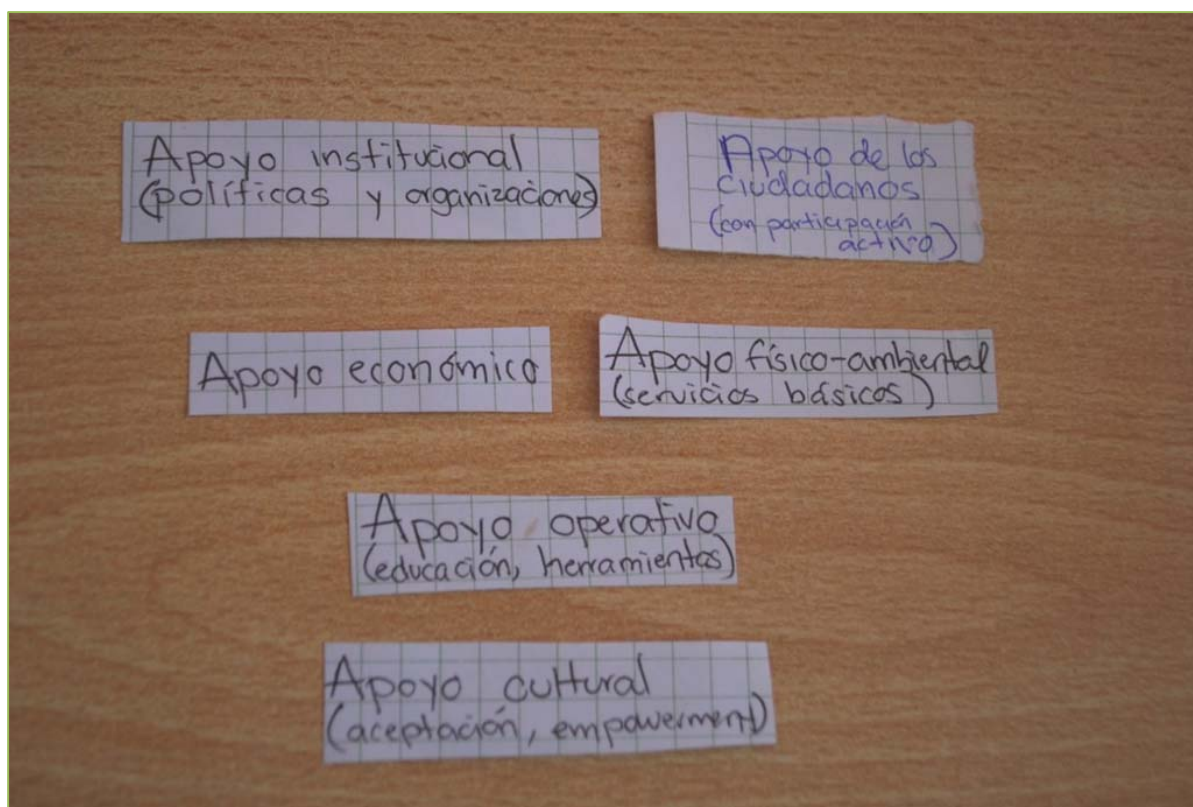 Apoyo institucional
(políticas y organizaciones)
Apoyo de los
ciudadanos
(con participación
activa)
Apoyo económico
Apoyo físico-ambiental
(servicios básicos)
Apoyo operativo
(educación, herramientas)
Apoyo cultural
(aceptación, empowerment)